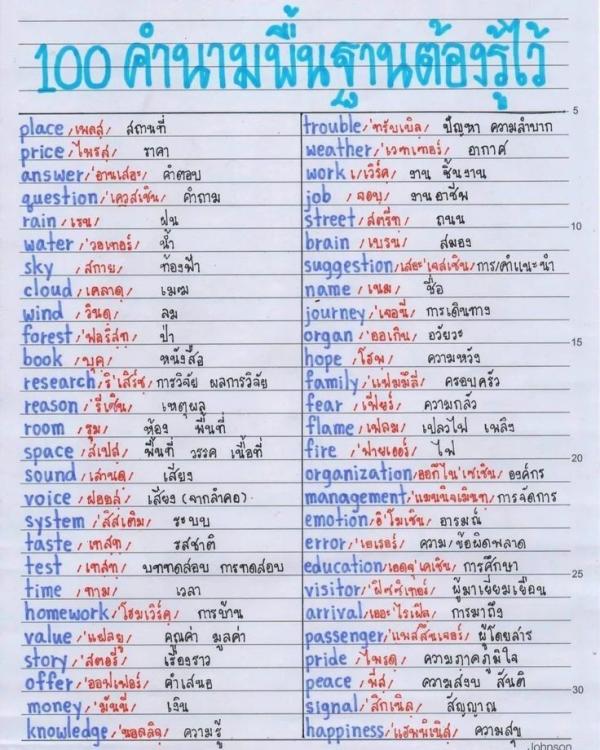 100 คำนามพื้นฐานต้องรู้ไว้
place /เพลสฺ/ สถานที่
price /ไพรสฺ/ ราคา
answer /'อานเสอะ/ คำตอบ
question /'เควสเชิน/ คำถาม
rain /เรน/ ฝน
water /'วอเทอร์/ น้ำ
sky /สกาย/ ท้องฟ้า
cloud /เคลาดฺ/ เมฆ
wind /วินดฺ/ ลม
forest /'ฟอริสทฺ/ ป่า
book /บุคฺ/ หนังสือ
research /ริ'เสิร์ช/ การวิจัย ผลการวิจัย
reason /'รีเซิน/ เหตุผล
room /รูม/ ห้อง พื้นที่
space /สเปส/ พื้นที่ วรรค เนื้อที่
sound /เสานดฺ/ เสียง
voice /ฝอยสฺ/ เสียง (จากลำคอ)
system /'สิสเติม/ ระบบ
taste /เทสทฺ/ รสชาติ
test /เทสทฺ/ บททดสอบ การทดสอบ
time /ทาม/ เวลา
homework /'โฮมเวิร์คฺ/ การบ้าน
value /'แฝลยู/ คุณค่า มูลค่า
story /'สตอรี่/ เรื่องราว
offer /'ออฟเฟอร์/ คำเสนอ
money /'มันนี่/ เงิน
knowledge /'นอลลิจ/ ความรู้
trouble /'ทรับเบิล/ ปัญหา ความลำบาก
weather /'เวทเทอร์/ อากาศ
work /เวิร์ค/ งาน ชิ้นงาน
job /จอบ/ งานอาชีพ
street /สตรีท/ ถนน
brain /เบรน/ สมอง
suggestion /เสอะ'เจสเชิน/ การ/คำแนะนำ
name /เนม/ ชื่อ
journey /'เจอนี่/ การเดินทาง
organ /'ออเกิน/ อวัยวะ
hope /โฮพ/ ความหวัง
family /'แฟมมิลี่/ ครอบครัว
fear /เฟียร์/ ความกลัว
flame /เฟลม/ เปลวไฟ เพลิง
fire /'ฟายเออร์/ ไฟ
organization /ออกึไน'เซเชิน/ องค์กร
management /'แมนนิจเมินทฺ/ การจัดการ
emotion /อิ'โมเชิน/ อารมณ์
error /'เอเรอร์/ ความ/ข้อผิดพลาด
education /เอดจุ'เคเชิน/ การศึกษา
visitor /'ฝิซซิเทอร์/ ผู้มาเยี่ยมเยือน
arrival /เออะ'ไรเฝิล/ การมาถึง
passenger /'แพสสินเจอร์/ ผู้โดยสาร
pride /ไพรดฺ/ ความภาคภูมิใจ
peace /พีสฺ/ ความสงบ สันติ
signal /'สิกเนิล/ สัญญาณ
happiness /'แฮ็พพิเนิส/ ความสุข
5
10
15
20
25
30
Johnson